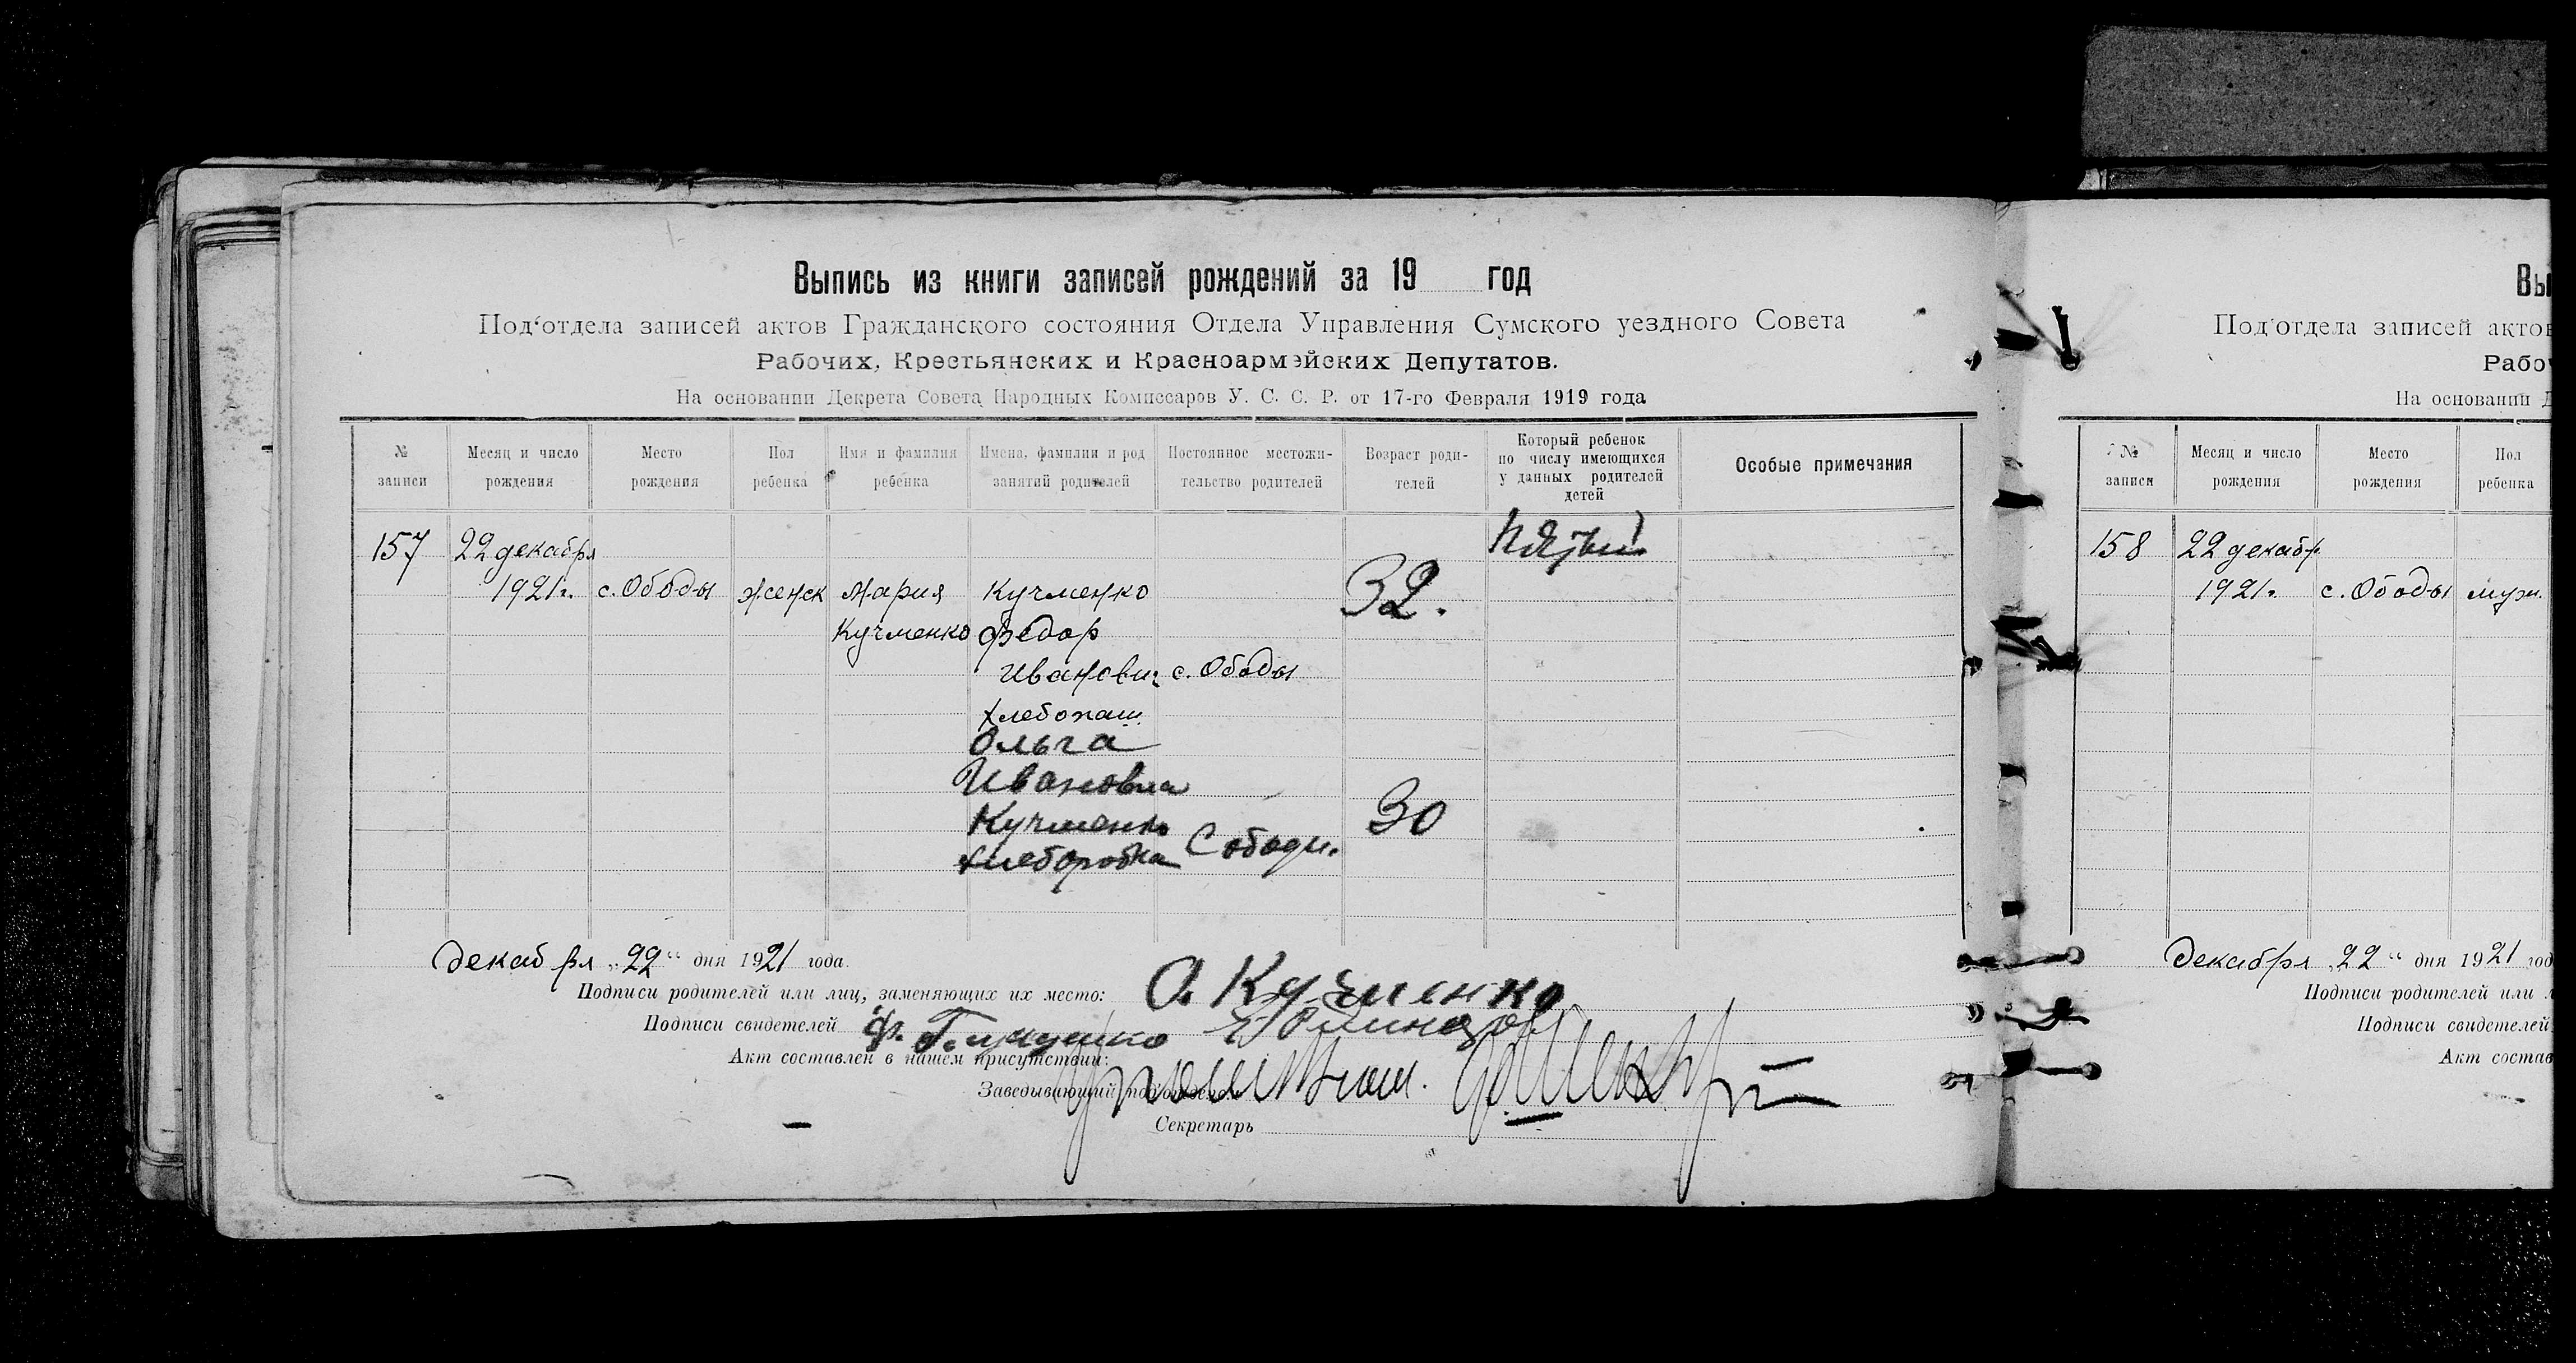 Выпись из книги записей рождений за 19 год
Под‘отдела записей актов Гражданского состояния Отдела Управления Сумского уездного Совета
Рабочих, Крестьянских и Красноармейских Депутатов.
На основании Декрета Совета Народных Комиссаров У. С. С. Р. от 17-го Февраля 1919 года
№ записи
Месяц и число рождения
Место рождения
Пол ребенка
Имя и фамилия ребенка
Имена, фамилии и род занятий родителей
Постоянное местожительство родителей
Возраст родителей
Который ребенок по числу имеющихся у данных родителей детей
Особые примечания
157
22 декабря
1921г.
с. Ободы
женск
Мария
Кучменко
Кучменко
Федор
Иванович
хлебопаш.
с. Ободы
32.
Пятый
Ольга
Ивановна
Кучменко
хлеборобка
С ободы.
30
декабря „22“ дня 1921 года.
Подписи родителей или лиц, заменяющих их место: О. Кучменко
Подписи свидетелей Ф.
Акт составлен в нашем присутствии:
Заведывающий под‘отделом
Секретарь
Вы
Под‘отдела записей актов
Рабоч
На основании Д
№ записи
Месяц и число рождения
Место рождения
Пол ребенка
158
22 декабр.
1921.
с. Ободы
муж.
Декабря „22“ дня 1921 год
Подписи родителей или л
Подписи свидетелей
Акт состав